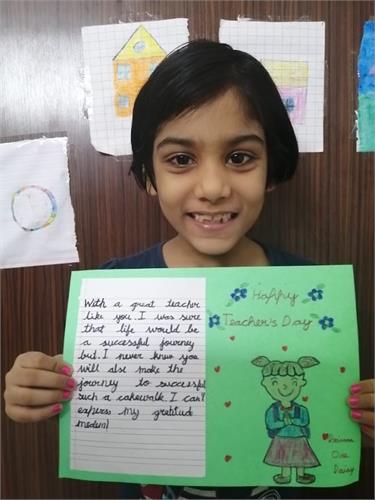 With a great teacher
like you. I was sure
that life would be
a successful journey
but. I never knew you
will also make the
journey to successful
such a cakewalk. I can't
express my gratitude
madam!
Happy
Teacher's Day
One
Daisy